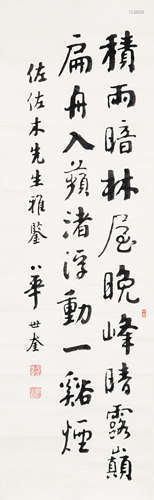 積雨暗林屋晚峰晴露巔
扁舟入蘋渚浮動一谿煙
佐佐木先生雅鑒
華世奎